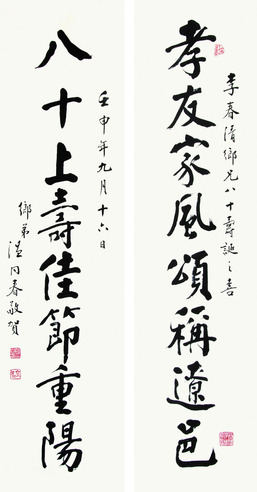 孝友家風頌稱遼邑
李春清鄉兄八十壽誕之喜
八十上壽佳節重陽
壬申年九月十六日
鄉弟 同春敬賀